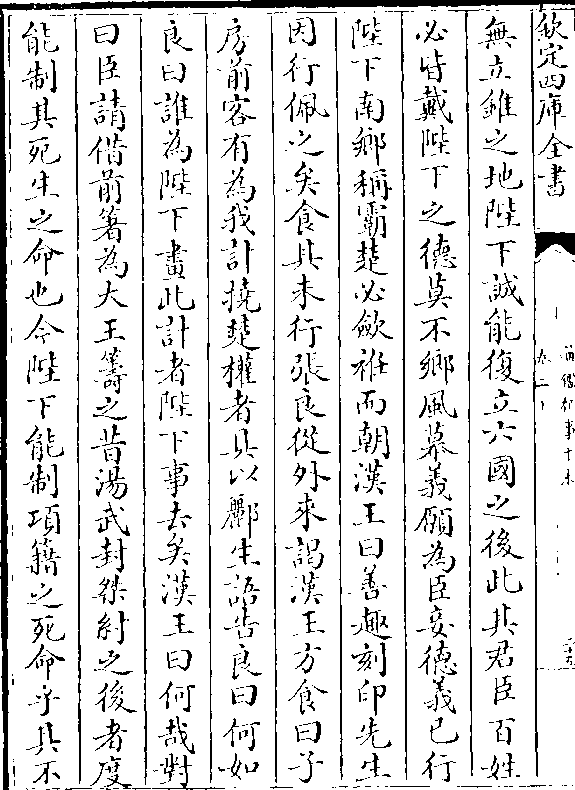 欽定四庫全書
無立錐之地陛下誠能復立六國之後此其君臣百姓
必皆戴陛下之德莫不鄉風慕義願為臣妾德義已行
陛下南鄉稱霸楚必歛袵而朝漢王曰善趣刻印先生
因行佩之矣食其未行張良從外來謁漢王方食曰子
房前客有為我計撓楚權者具以酈生語告良曰何如
良曰誰為陛下畫此計者陛下事去矣漢王曰何哉對
曰臣請借前箸為大王籌之昔湯武封桀紂之後者度
能制其死生之命也今陛下能制項籍之死命乎其不